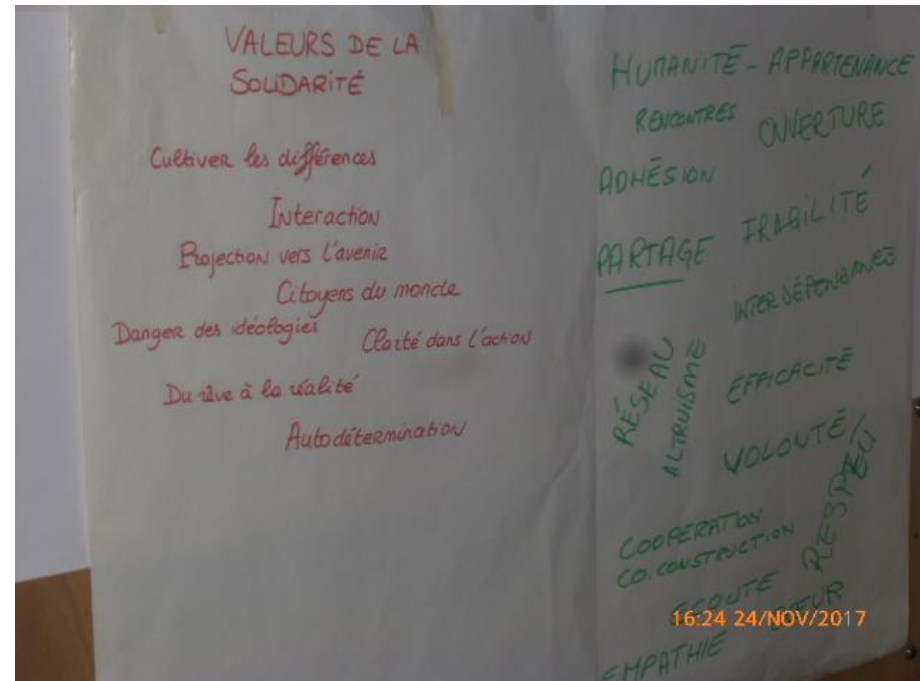 VALEURS DE LA
SOLIDARITÉ
Cultiver les différences
Interaction
Projection vers l'avenir
Citoyens du monde
Danger des idéologies
Clarté dans l'action
Du rêve à la réalité
Autodétermination
HUMANITÉ - APPARTENANCE
RENCONTRES
OUVERTURE
ADHÉSION
PARTAGE
FRAGILITÉ
INTERDÉPENDANCE
RÉSEAU
ALTRUISME
EFFICACITÉ
VOLONTÉ
RESPECT
COOPÉRATION
CO.CONSTRUCTION
ECOUTE
CŒUR
EMPATHIE
16:24 24/NOV/2017